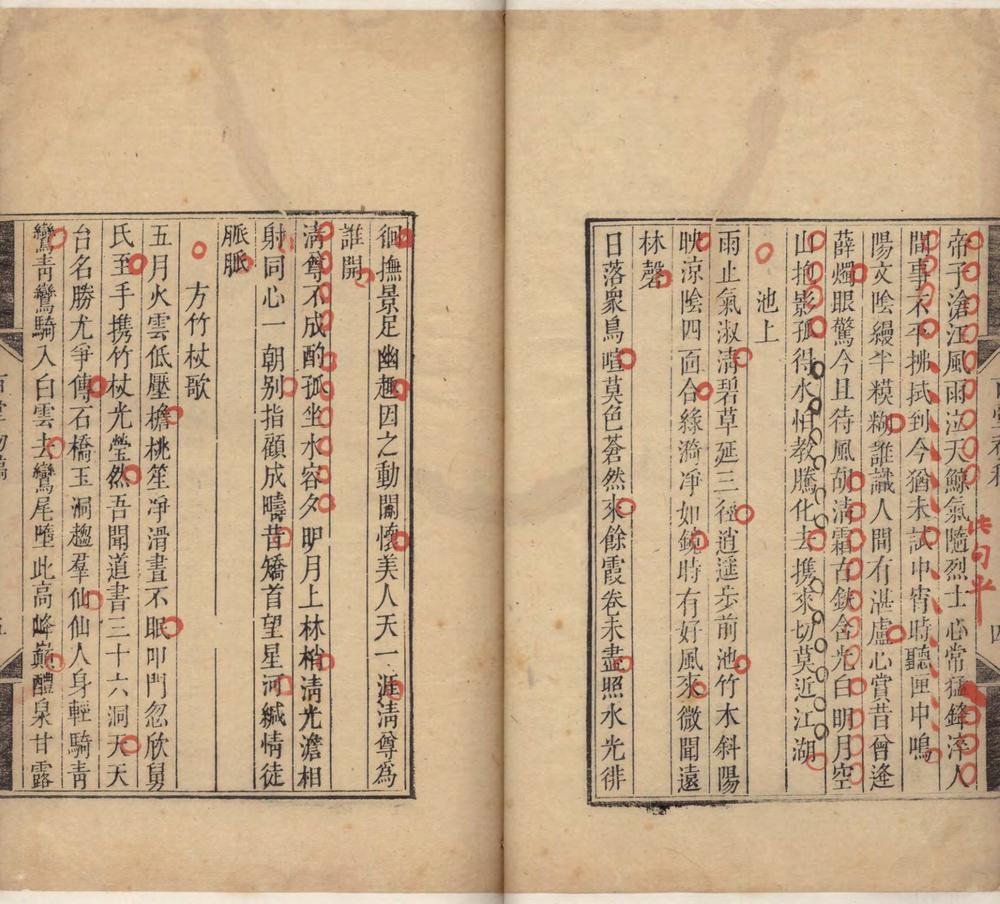 帝子滄江風雨泣天鯨氣隨烈士心常猛鋒淬人
間事不平拂拭到今猶未試中宵時聽匣中鳴
陽文陰縵半糢糊誰識人間有湛盧心賞昔曾逢
薛燭眼驚今且待風胡清霜古鋏含光白明月空
山抱影孤得水怕教騰化去携來切莫近江湖
池上
雨止氣淑淸碧草延三徑逍遥步前池竹木斜陽
映涼陰四面合綠漪净如鏡時有好風來微聞遠
林磬
日落衆鳥喧莫色蒼然來餘霞卷未盡照水光徘
徊撫景足幽趣因之動闌懷美人天一涯淸尊爲
誰開
淸尊不成酌孤坐水容夕明月上林梢淸光澹相
射同心一朝别指顧成疇昔矯首望星河緘情徒
脈脈
方竹杖歌
五月火雲低壓檐桃笙凈滑晝不眠叩門忽欣舅
氏至手携竹杖光瑩然吾聞道書三十六洞天天
台名勝尤爭傳石橋玉洞趨羣仙仙人身輕騎靑
鸞靑鸞騎入白雲去鸞尾墮此高峰巔醴泉甘露
此句平
四
五